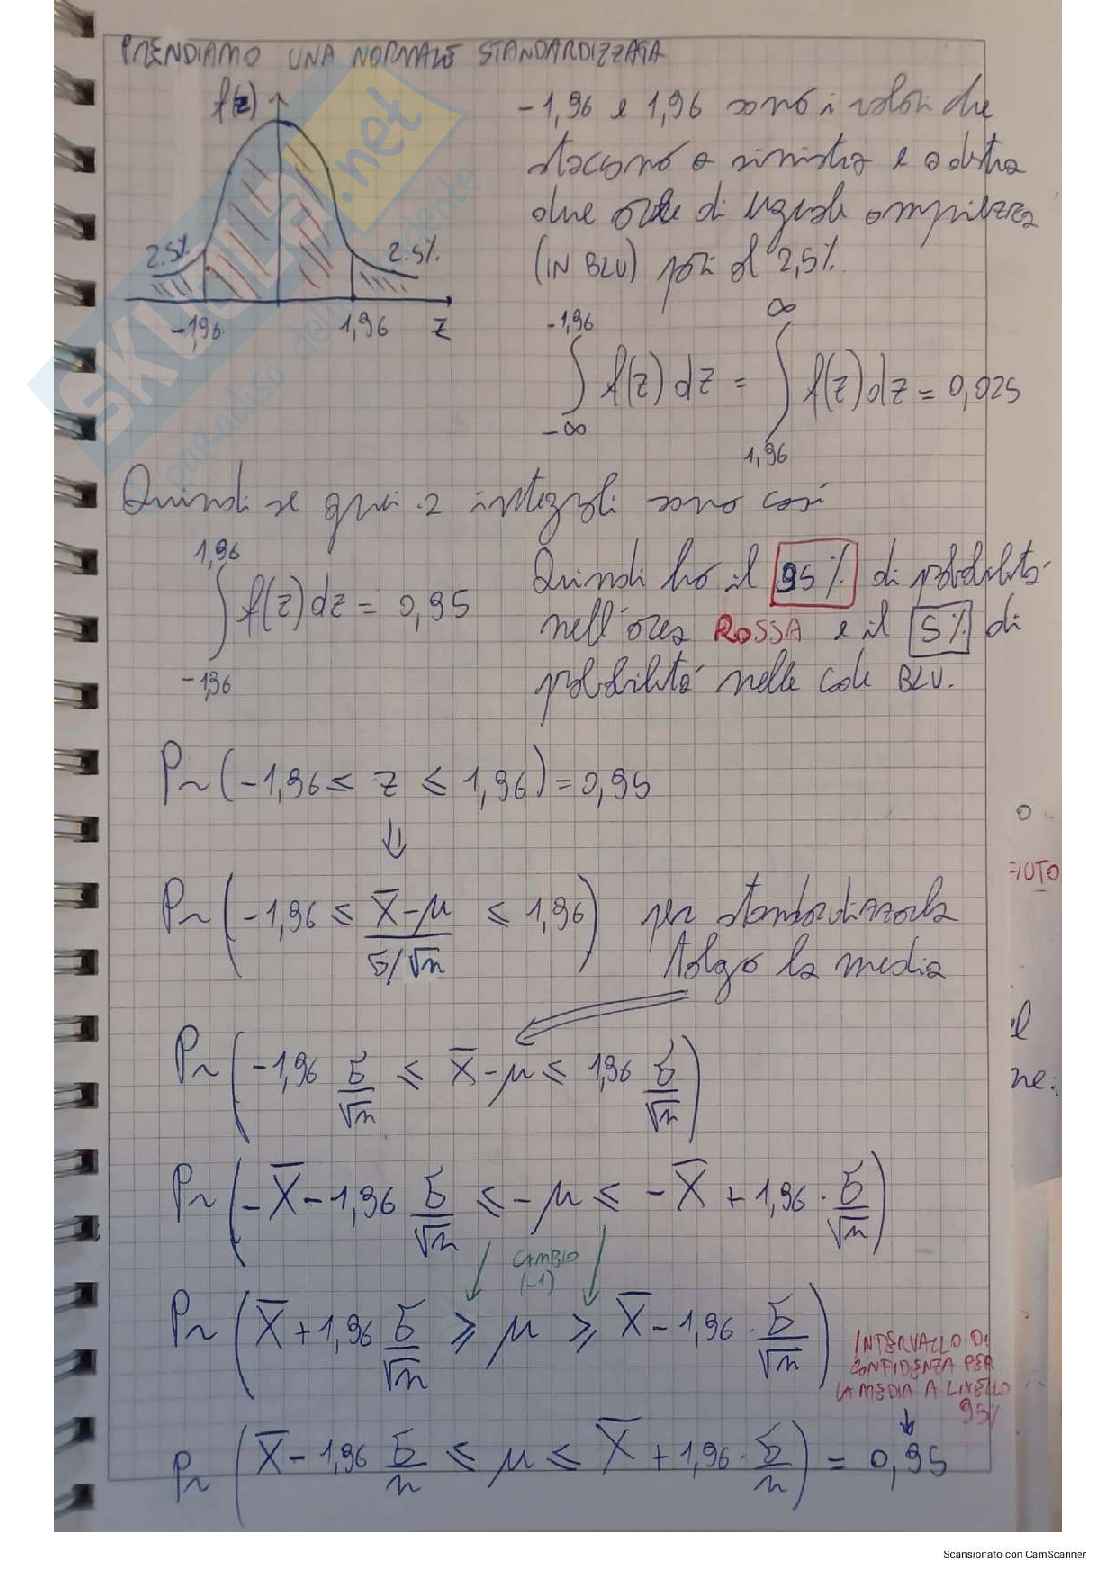 PRENDIAMO UNA NORMALE STANDARDIZZATA
f(z)
-1,96 e 1,96 sono i valori che
staccano a sinistra e a destra
due code di uguale ampiezza
(IN BLU) pari al 2,5%.
2.5% 2.5%
-1,96 1,96 z
∫_{-∞}^{-1,96} f(z) dz = ∫_{1,96}^{∞} f(z) dz = 0,025
Quindi se quei 2 integrali sono così
∫_{-1,96}^{1,96} f(z) dz = 0,95
Quindi ho il 95% di probabilità
nell'area ROSSA e il 5% di
probabilità nelle code BLU.
Pr (-1,96 ≤ z ≤ 1,96) = 0,95
⇓
Pr (-1,96 ≤ (X̅-μ)/(σ/√n) ≤ 1,96) per standardizzarla
tolgo la media
Pr (-1,96 σ/√n ≤ X̅-μ ≤ 1,96 σ/√n)
Pr (-X̅ - 1,96 σ/√n ≤ -μ ≤ -X̅ + 1,96 · σ/√n)
CAMBIO
(-1)
Pr (X̅ + 1,96 σ/√n ≥ μ ≥ X̅ - 1,96 · σ/√n)
INTERVALLO DI
CONFIDENZA PER
LA MEDIA A LIVELLO
95%
Pr (X̅ - 1,96 σ/n ≤ μ ≤ X̅ + 1,96 · σ/n) = 0,95
SKUOLA.net
Scansionato con CamScanner